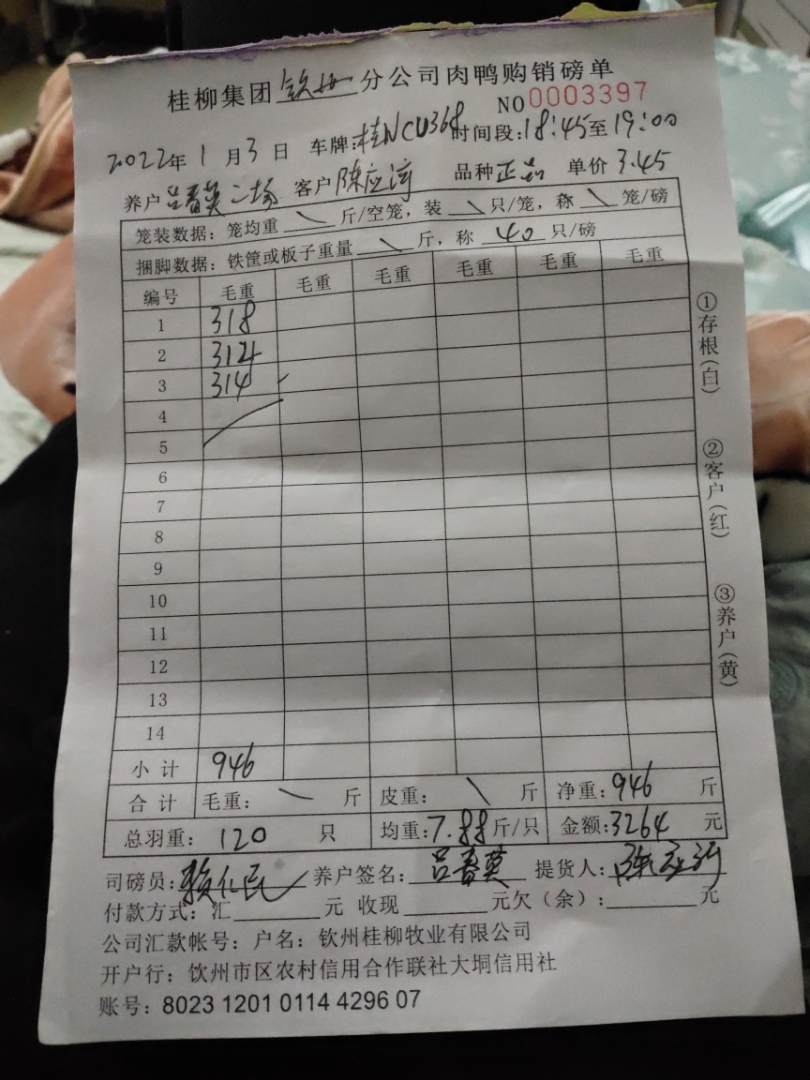 桂柳集团钦州分公司肉鸭购销磅单
NO0003397
2022年1月3日 车牌:桂NCU368 时间段:18:45至19:00
养户吕春英二场 客户陈应 品种正品 单价3.45
笼装数据：笼均重\斤/空笼，装\只/笼，称\笼/磅
捆脚数据：铁筐或板子重量\斤，称40只/磅
编号 毛重 毛重 毛重 毛重 毛重 毛重
1 318
2 314
3 314
4
5
6
7
8
9
10
11
12
13
14
小计 946
合计 毛重：\斤 皮重：\斤 净重：946斤
总羽重：120只 均重:7.88斤/只 金额:3264元
司磅员:赖仁民 养户签名:吕春英 提货人:陈应
付款方式：汇 元 收现 元欠（余）: 元
公司汇款帐号：户名：钦州桂柳牧业有限公司
开户行：饮州市区农村信用合作联社大垌信用社
账号：8023 1201 0114 4296 07
①存根(白)
②客户(红)
③养户(黄)